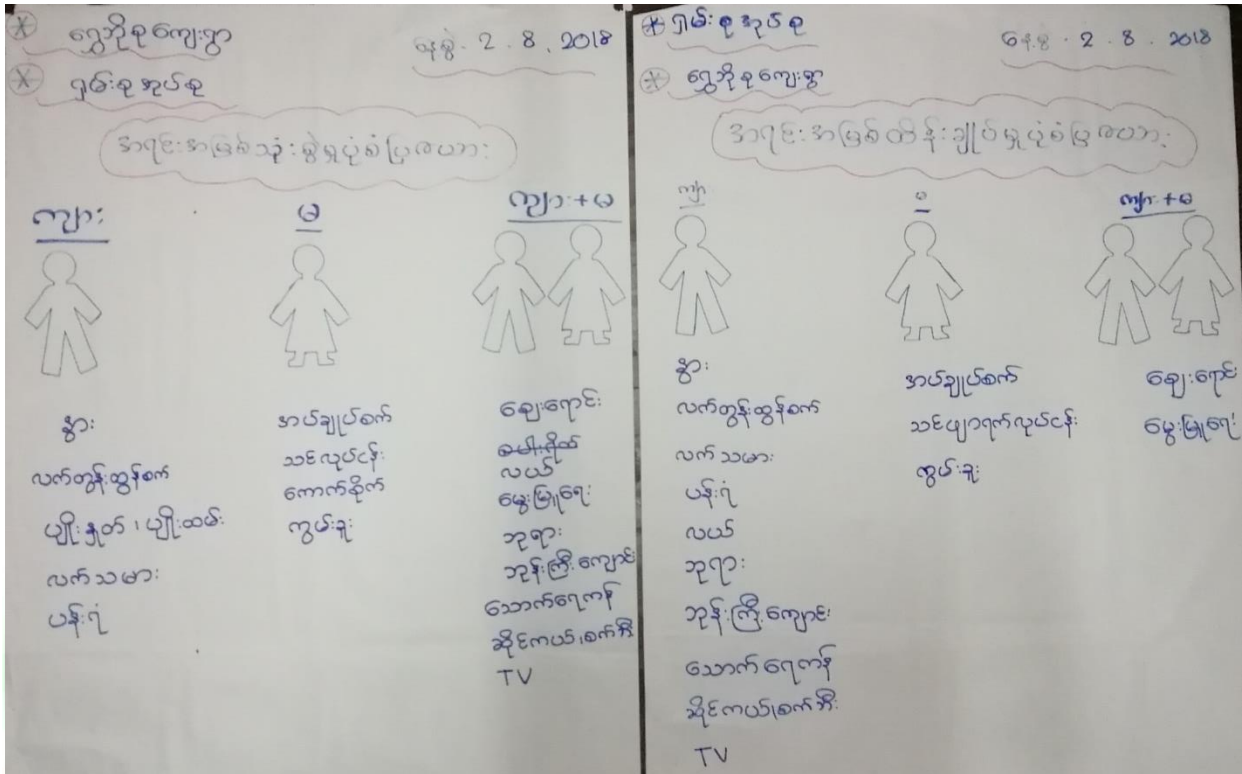 ရွှေဘိုစုကျေးရွာ
နေ့စွဲ . 2 . 8 . 2018
ရှမ်းစုအုပ်စု
အရင်းအမြစ်သုံးစွဲမှုပုံစံပြဇယား
ကျား
မ
ကျား+မ
နွား
လက်တွန်းထွန်စက်
ပျိုးနှုတ်၊ ပျိုးထမ်း
လက်သမား
ပန်းရံ
အပ်ချုပ်စက်
သင်လုပ်ငန်း
ကောက်စိုက်
ကွမ်းခူး
ချေးရောင်း
လယ်
မွေးမြူရေး
ဘုရား
ဘုန်းကြီးကျောင်း
သောက်ရေကန်
ဆိုင်ကယ်၊စက်ဘီး
TV
ရှမ်းစုအုပ်စု
နေ့စွဲ . 2 . 8 . 2018
ရွှေဘိုစုကျေးရွာ
အရင်းအမြစ်ထိန်းချုပ်မှုပုံစံပြဇယား
ကျား
မ
ကျား+မ
နွား
လက်တွန်းထွန်စက်
လက်သမား
ပန်းရံ
လယ်
ဘုရား
ဘုန်းကြီးကျောင်း
သောက်ရေကန်
ဆိုင်ကယ်၊စက်ဘီး
TV
အပ်ချုပ်စက်
သင်ဖျာရက်လုပ်ငန်း
ကွမ်းခူး
ချေးရောင်း
မွေးမြူရေး